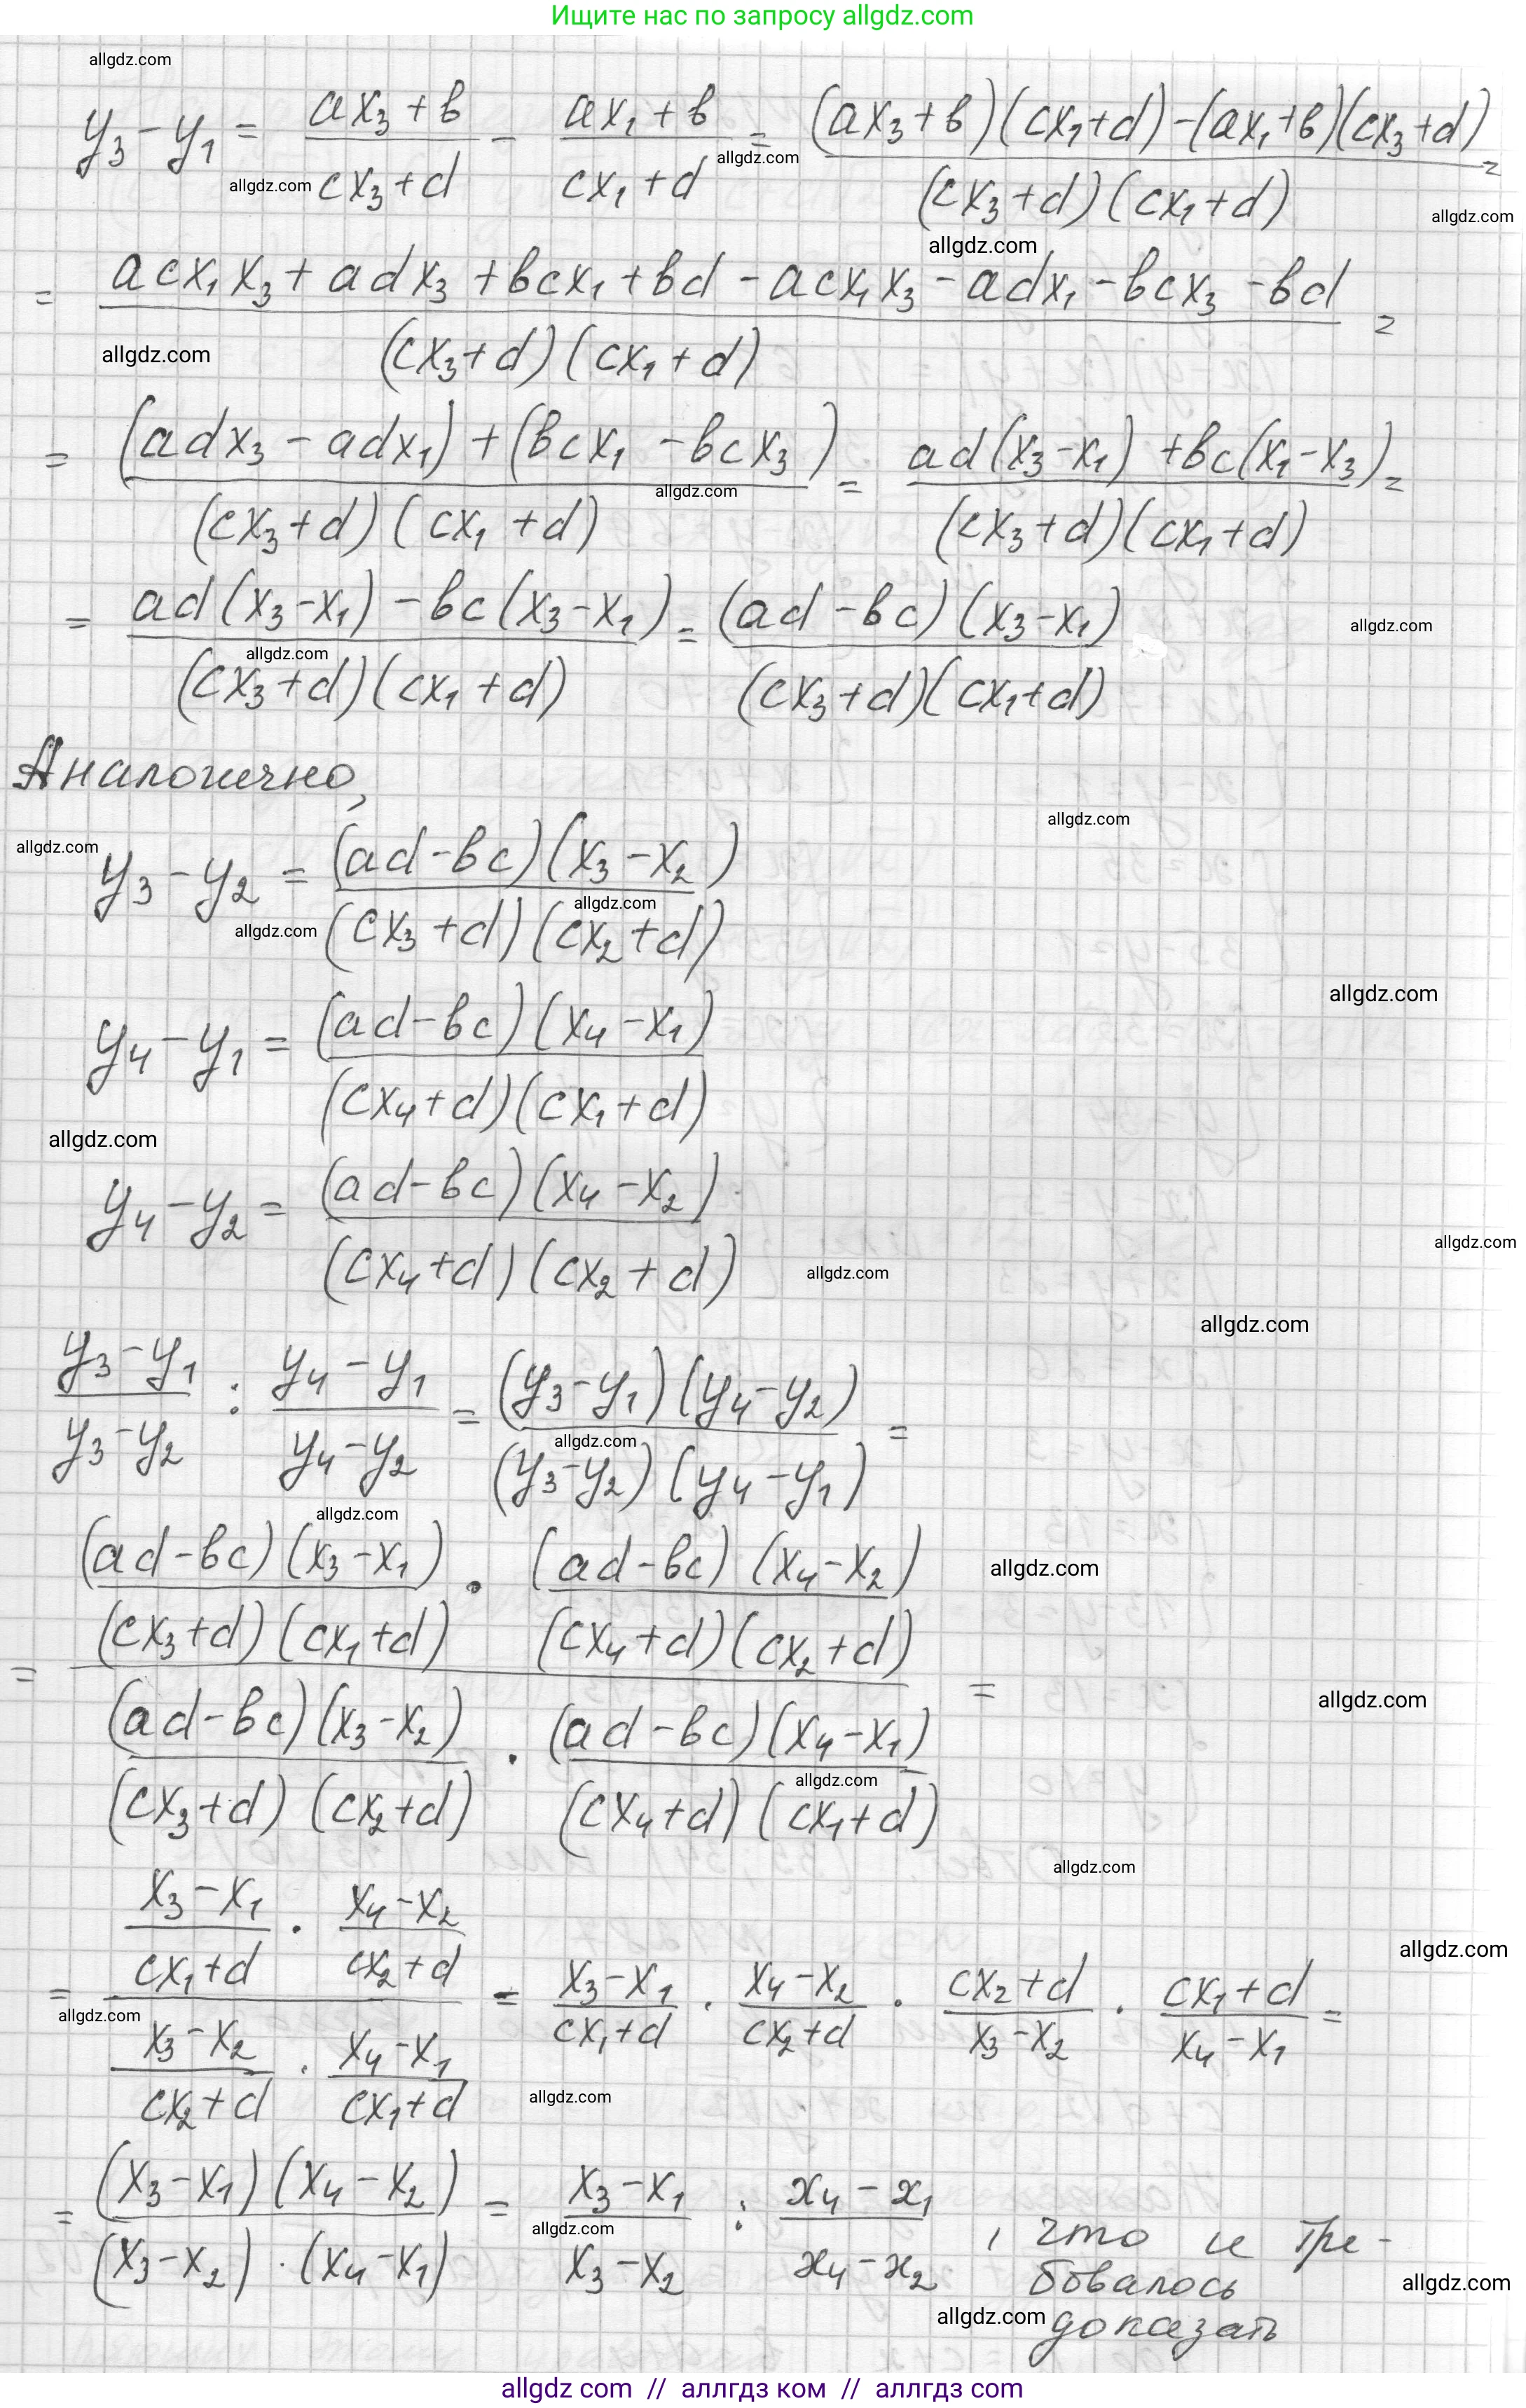 Ищите нас по запросу allgdz.com
allgdz.com
y₃ − y₁ = (ax₃ + b)/(cx₃ + d) − (ax₁ + b)/(cx₁ + d) = ((ax₃ + b)(cx₁ + d) − (ax₁ + b)(cx₃ + d))/((cx₃ + d)(cx₁ + d)) =
allgdz.com allgdz.com allgdz.com
allgdz.com
= (acx₁x₃ + adx₃ + bcx₁ + bd − acx₁x₃ − adx₁ − bcx₃ − bd)/((cx₃ + d)(cx₁ + d)) =
allgdz.com
= ((adx₃ − adx₁) + (bcx₁ − bcx₃))/((cx₃ + d)(cx₁ + d)) = (ad(x₃ − x₁) + bc(x₁ − x₃))/((cx₃ + d)(cx₁ + d)) =
allgdz.com
= (ad(x₃ − x₁) − bc(x₃ − x₁))/((cx₃ + d)(cx₁ + d)) = ((ad − bc)(x₃ − x₁))/((cx₃ + d)(cx₁ + d))
allgdz.com allgdz.com
Аналогично,
allgdz.com allgdz.com
y₃ − y₂ = ((ad − bc)(x₃ − x₂))/((cx₃ + d)(cx₂ + d))
allgdz.com allgdz.com
allgdz.com
y₄ − y₁ = ((ad − bc)(x₄ − x₁))/((cx₄ + d)(cx₁ + d))
allgdz.com
y₄ − y₂ = ((ad − bc)(x₄ − x₂))/((cx₄ + d)(cx₂ + d))
allgdz.com allgdz.com
allgdz.com
(y₃ − y₁)/(y₃ − y₂) : (y₄ − y₁)/(y₄ − y₂) = ((y₃ − y₁)(y₄ − y₂))/((y₃ − y₂)(y₄ − y₁)) =
allgdz.com
allgdz.com
= (((ad − bc)(x₃ − x₁))/((cx₃ + d)(cx₁ + d)) · ((ad − bc)(x₄ − x₂))/((cx₄ + d)(cx₂ + d)))/(((ad − bc)(x₃ − x₂))/((cx₃ + d)(cx₂ + d)) · ((ad − bc)(x₄ − x₁))/((cx₄ + d)(cx₁ + d))) =
allgdz.com allgdz.com allgdz.com
allgdz.com
= ((x₃ − x₁)/(cx₁ + d) · (x₄ − x₂)/(cx₂ + d))/((x₃ − x₂)/(cx₂ + d) · (x₄ − x₁)/(cx₁ + d)) = (x₃ − x₁)/(cx₁ + d) · (x₄ − x₂)/(cx₂ + d) · (cx₂ + d)/(x₃ − x₂) · (cx₁ + d)/(x₄ − x₁) =
allgdz.com allgdz.com allgdz.com
= ((x₃ − x₁)(x₄ − x₂))/((x₃ − x₂) · (x₄ − x₁)) = (x₃ − x₁)/(x₃ − x₂) : (x₄ − x₁)/(x₄ − x₂) , что и тре-
бовалось
доказать
allgdz.com allgdz.com allgdz.com
allgdz com // аллгдз ком // аллгдз com